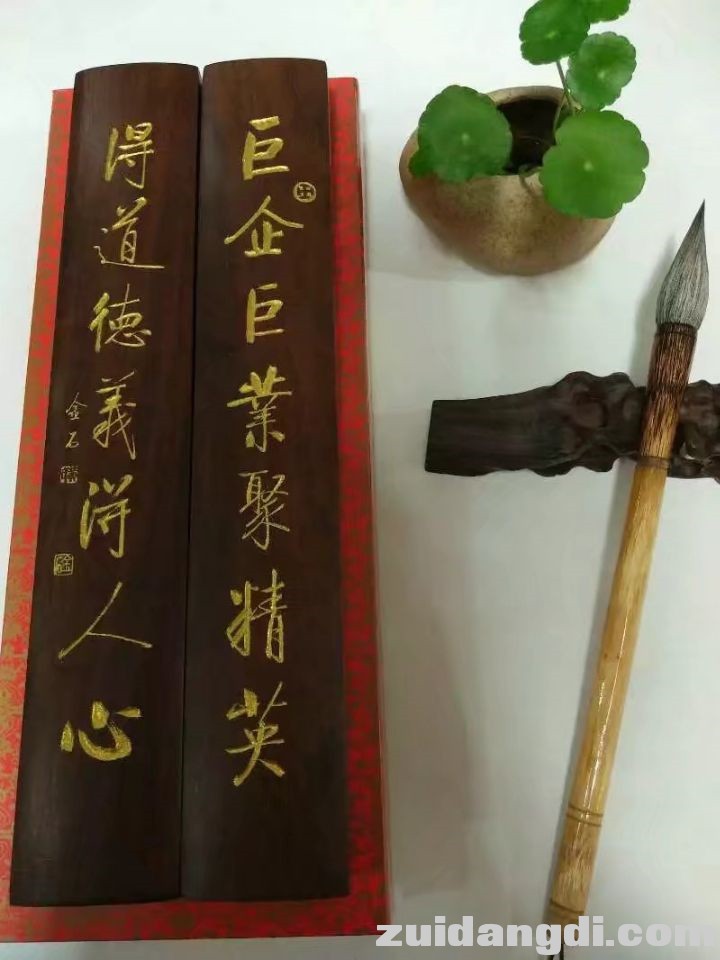 巨企巨業聚精英
得道德義得人心
金石
zuidangdi.com